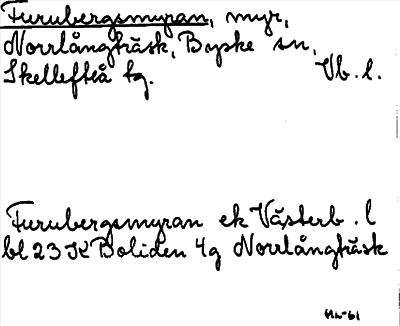 Furubergsmyran, myr,
Norrlångträsk, Byske sn,
Skellefteå tg. Vb. l.
Furubergsmyran ek Västerb. l
bl 23 K Boliden 4g Norrlångträsk
HL-61